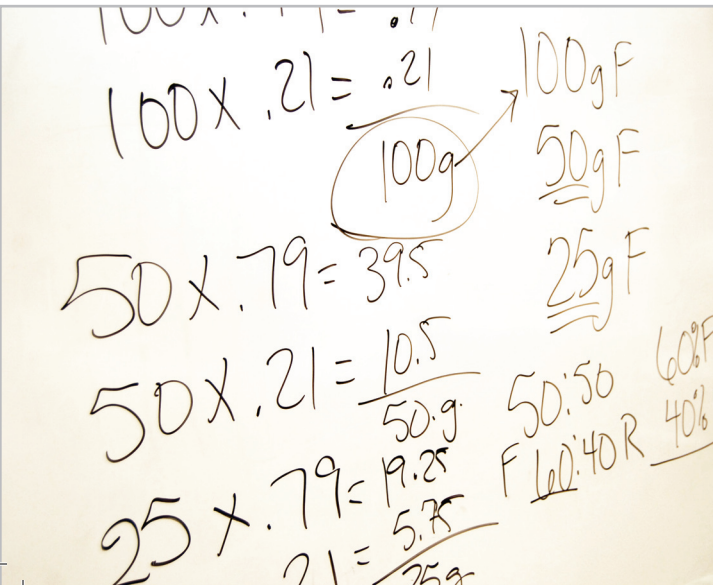 100 x .79 = .79
100 x .21 = .21
100g
100g F
50g F
25g F
50 x .79 = 39.5
50 x .21 = 10.5
50.g.
25 x .79 = 19.25
.21 = 5.75
25g
50:50
F 60:40 R
60% F
40%